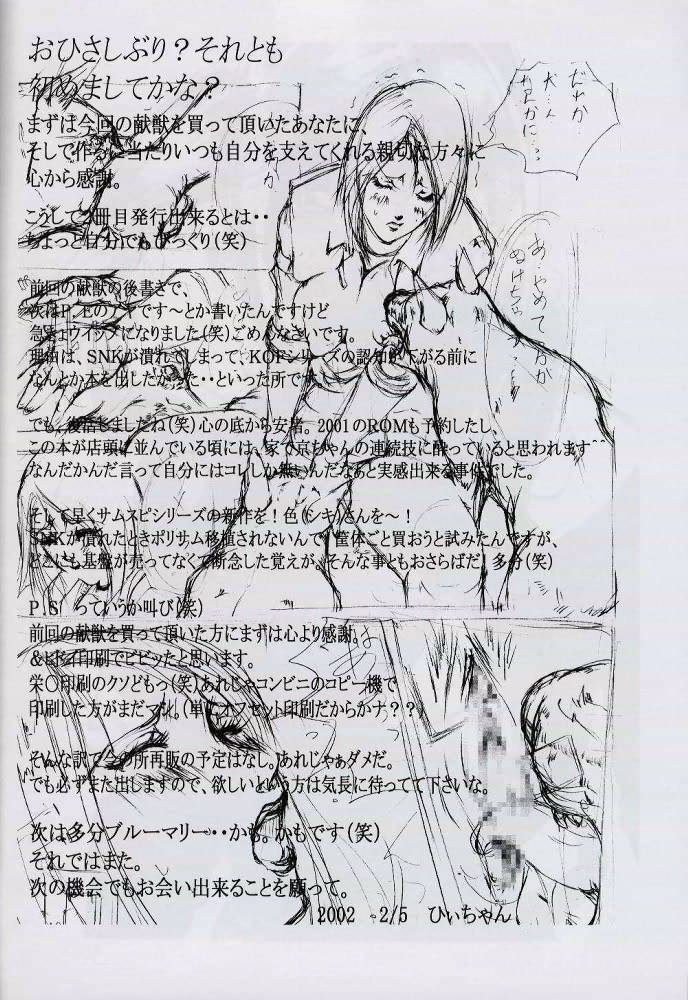 おひさしぶり？それとも
初めましてかな？
まずは今回の献獣を買って頂いたあなたに、
そして作るに当たりいつも自分を支えてくれる親切な方々に
心から感謝。
こうして2冊目発行出来るとは・・
ちょっと自分でもびっくり（笑）
前回の献獣の後書きで、
次はP.Eのアヤです〜とか書いたんですけど
急きょウイップになりました（笑）ごめんなさいです。
理由は、SNKが潰れてしまって、KOFシリーズの認知が下がる前に
なんとか本を出したかった・・といった所です。
でも、復活しましたね（笑）心の底から安堵。2001のROMも予約したし、
この本が店頭に並んでいる頃には、家で京ちゃんの連続技に酔っていると思われます^^
なんだかんだ言って自分にはコレしか無いんだなあと実感出来る事件でした。
そして早くサムスピシリーズの新作を！色（シキ）さんを〜！
SNKが潰れたときポリサム移植されないんで、筐体ごと買おうと試みたんですが、
どこにも基盤が売ってなくて断念した覚えが。そんな事ともおさらばだ、多分（笑）
P.S　っていうか叫び（笑）
前回の献獣を買って頂いた方にまずは心より感謝。
&ヒドイ印刷でビビッたと思います。
栄〇印刷のクソどもっ（笑）あれじゃコンビニのコピー機で
印刷した方がまだマシ。（単にオフセット印刷だからかナ？？）
そんな訳で今の所再販の予定はなし。あれじゃぁダメだ。
でも必ずまた出しますので、欲しいという方は気長に待ってて下さいな。
次は多分ブルーマリー・・かも。かもです（笑）
それではまた。
次の機会でもお会い出来ることを願って。
2002　2/5　ひぃちゃん
だれか
あ、やめて